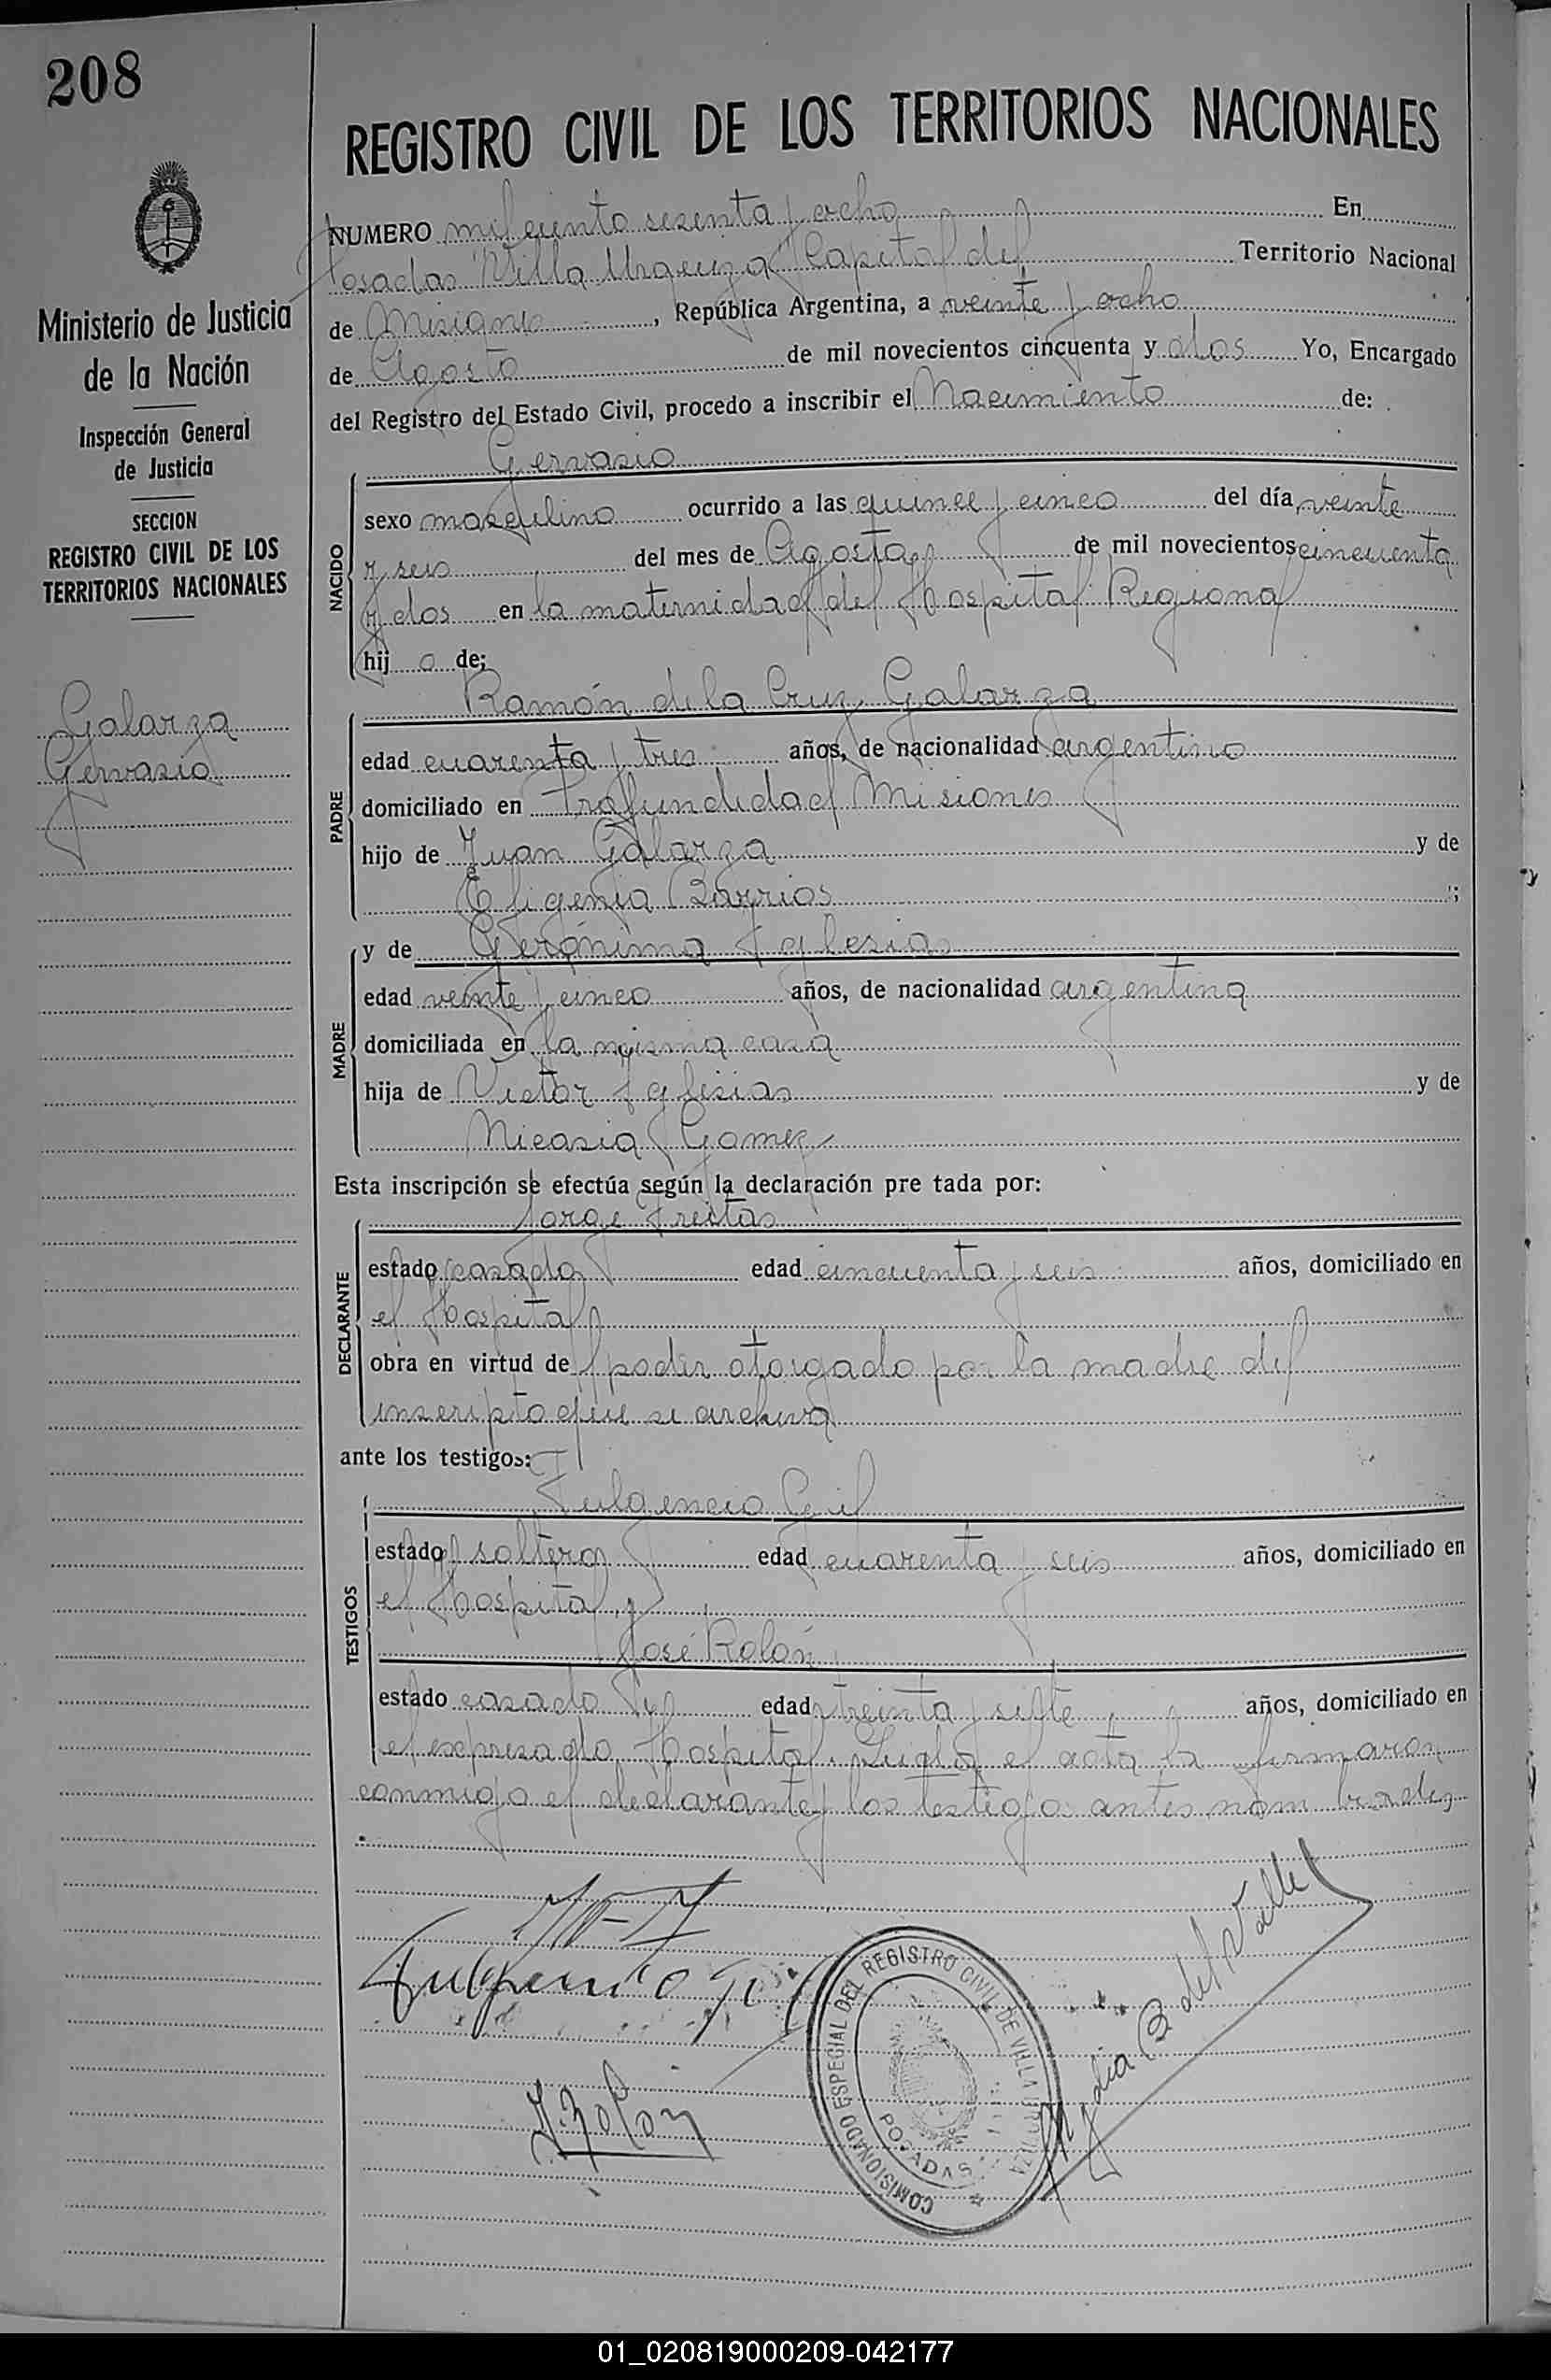 208
REGISTRO CIVIL DE LOS TERRITORIOS NACIONALES
Ministerio de Justicia
de la Nación
Inspección General
de Justicia
SECCION
REGISTRO CIVIL DE LOS
TERRITORIOS NACIONALES
Galarza
Gervasio
NUMERO mil ciento sesenta y ocho En
Posadas "Villa Urquiza" Capital del Territorio Nacional
de Misiones, República Argentina, a veinte y ocho
de Agosto de mil novecientos cincuenta y dos Yo, Encargado
del Registro del Estado Civil, procedo a inscribir el Nacimiento de:
NACIDO
Gervasio
sexo masculino ocurrido a las quince y cinco del día veinte
y seis del mes de Agosto de mil novecientos cincuenta
y dos en la maternidad del Hospital Regional
hij o de:
PADRE
Ramón de la Cruz Galarza
edad cuarenta y tres años, de nacionalidad argentino
domiciliado en Profundidad Misiones
hijo de Juan Galarza y de
Efigenia Barrios ;
MADRE
y de Gerónima Iglesias
edad veinte y cinco años, de nacionalidad argentina
domiciliada en la misma casa
hija de Victor Iglesias y de
Nicasia Gomez
Esta inscripción se efectúa según la declaración pre tada por:
DECLARANTE
Jorge Freitas
estado casado edad cincuenta y seis años, domiciliado en
el Hospital
obra en virtud de poder otorgado por la madre del
inscripto que se archiva
ante los testigos:
TESTIGOS
Fulgencio Gil
estado soltero edad cuarenta y seis años, domiciliado en
el Hospital y
José Rolón
estado casado edad treinta y siete años, domiciliado en
el expresado Hospital. Leida el acta la firmaron
conmigo el declarante y los testigos antes nombrados
Fulgencio Gil
J. Rolón
B del Valle
COMISIONADO ESPECIAL DEL REGISTRO CIVIL DE VILLA URQUIZA
POSADAS
01_020819000209-042177